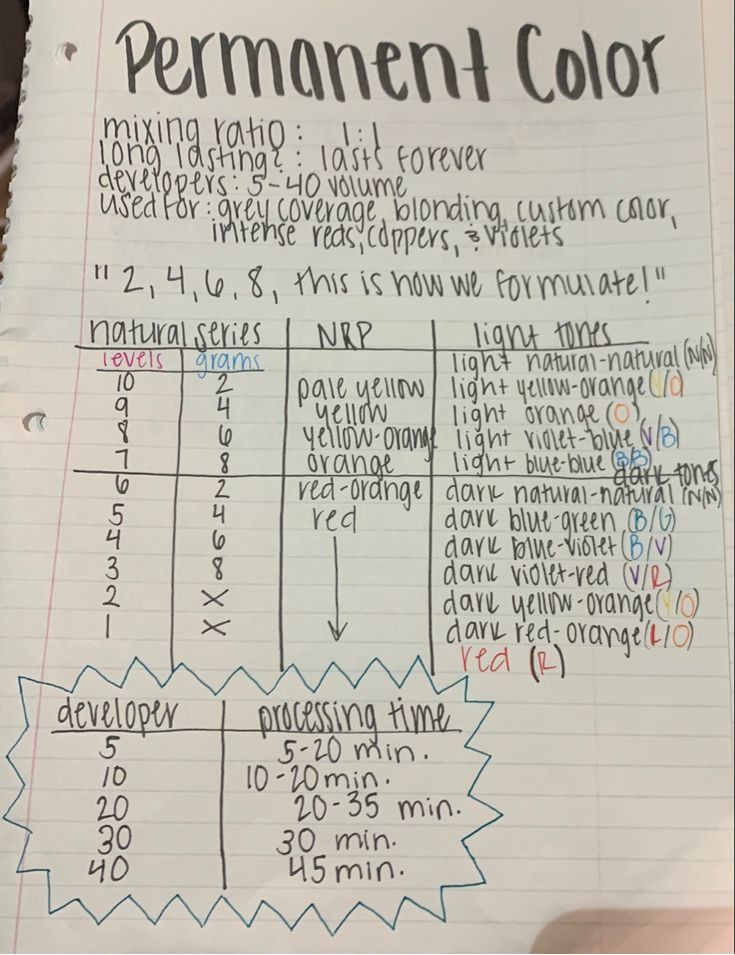 Permanent Color
mixing ratio: 1:1
long lasting?: lasts forever
developers: 5-40 volume
used for: grey coverage, blonding, custom color,
intense reds, coppers, & violets
"2, 4, 6, 8, this is how we formulate!"
natural series NRP light tones
levels grams light natural-natural (N/N)
10 2 pale yellow light yellow-orange (Y/O)
9 4 yellow light orange (O)
8 6 yellow-orange light violet-blue (V/B)
7 8 orange light blue-blue (B/B)
dark tones
6 2 red-orange dark natural-natural (N/N)
5 4 red dark blue-green (B/G)
4 6 dark blue-violet (B/V)
3 8 dark violet-red (V/R)
2 X dark yellow-orange (Y/O)
1 X dark red-orange (R/O)
red (R)
developer processing time
5 5-20 min.
10 10-20 min.
20 20-35 min.
30 30 min.
40 45 min.